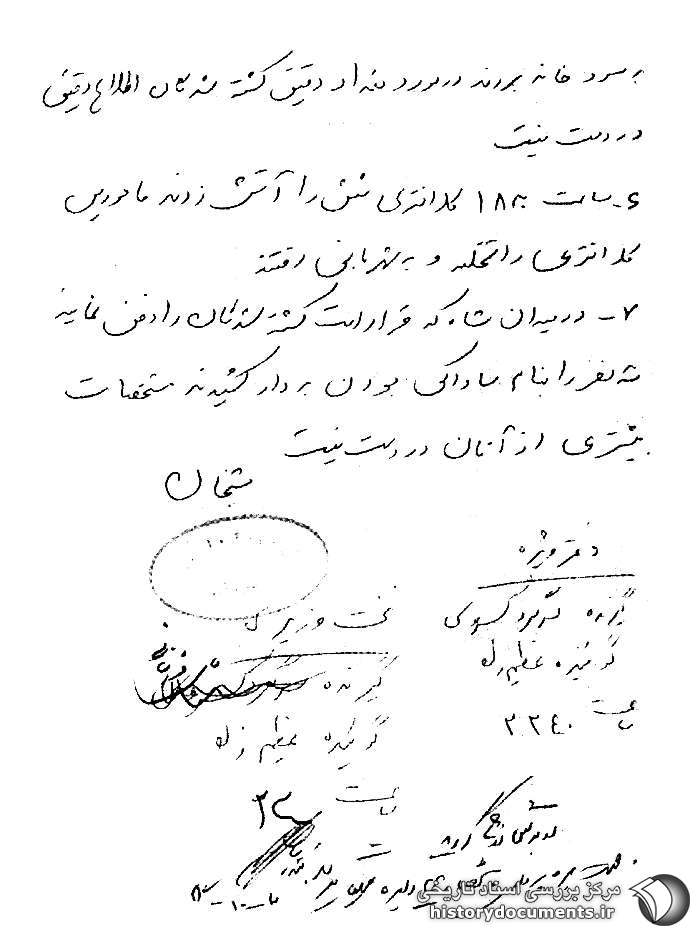 به سرد خانه بردند در مورد تعداد دقیق کشته شدگان اطلاع دقیق
در دست نیست
۶- ساعت ۱۸۳۰ کلانتری شش را آتش زدند مامورین
کلانتری را تخلیه و به شهربانی رفتند
۷- در میدان شاه که قرار است کشته شدگان را دفن نمایند
سه نفر را بنام ساواکی بودن بدار کشیدند مشخصات
بیشتری از آنان در دست نیست
دفتر ویژه
گیرنده
گوینده عظیم زاده
ساعت ۲۲۴۰
نخست وزیری
گیرنده
گوینده عظیم زاده
ساعت ۲۳
مرکز بررسی اسناد تاریخی
historydocuments.ir